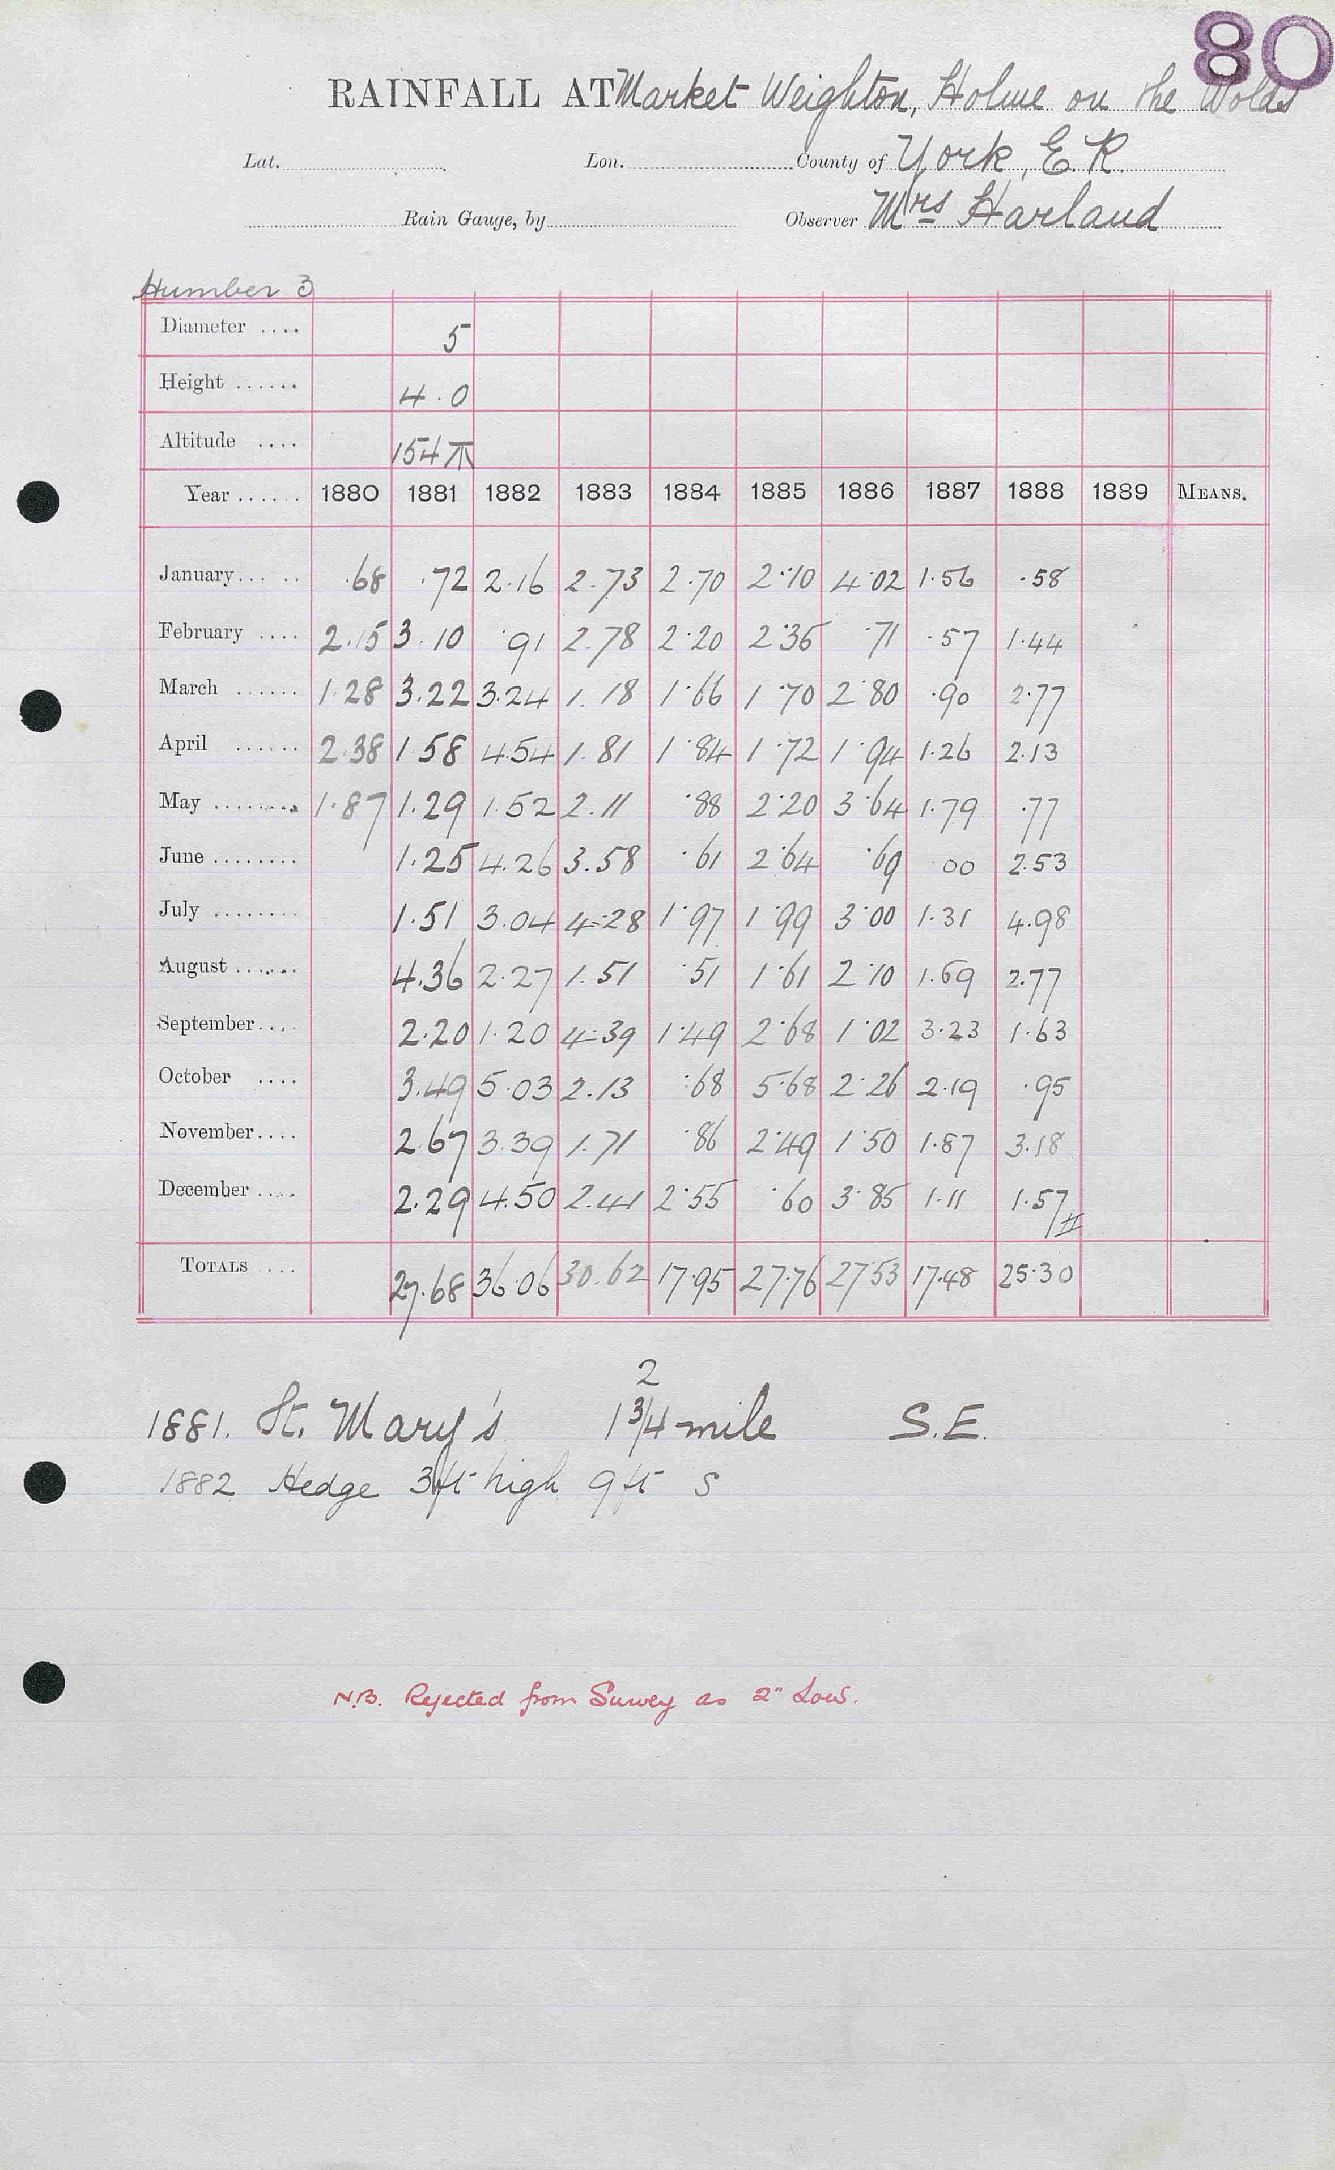 80
RAINFALL AT Market Weighton, Holme on the Wolds
Lat. Lon. County of York, E.R.
Rain Gauge, by Observer Mrs Harland
Humber 3
Diameter .... 5
Height ...... 4.0
Altitude .... 154
Year ...... 1880 1881 1882 1883 1884 1885 1886 1887 1888 1889 MEANS.
January ... .. .68 .72 2.16 2.73 2.70 2.10 4.02 1.56 .58
February .... 2.15 3.10 .91 2.78 2.20 2.36 .71 .57 1.44
March ...... 1.28 3.22 3.24 1.18 1.66 1.70 2.80 .90 2.77
April ...... 2.38 1.58 4.54 1.81 1.84 1.72 1.94 1.26 2.13
May ........ 1.87 1.29 1.52 2.11 .88 2.20 3.64 1.79 .77
June ........ 1.25 4.26 3.58 .61 2.64 .69 00 2.53
July ........ 1.51 3.04 4.28 1.97 1.99 3.00 1.31 4.98
August ...... 4.36 2.27 1.51 .51 1.61 2.10 1.69 2.77
September .... 2.20 1.20 4.39 1.49 2.68 1.02 3.23 1.63
October .... 3.49 5.03 2.13 .68 5.68 2.26 2.19 .95
November .... 2.67 3.39 1.71 .86 2.49 1.50 1.87 3.18
December .... 2.29 4.50 2.41 2.55 .60 3.85 1.11 1.57
TOTALS ... 27.68 36.06 30.62 17.95 27.76 27.53 17.48 25.30
2
1881. St. Mary's 1 3/4 mile S.E.
1882 Hedge 3ft high 9 ft S
N.B. Rejected from Survey as 2" Low.